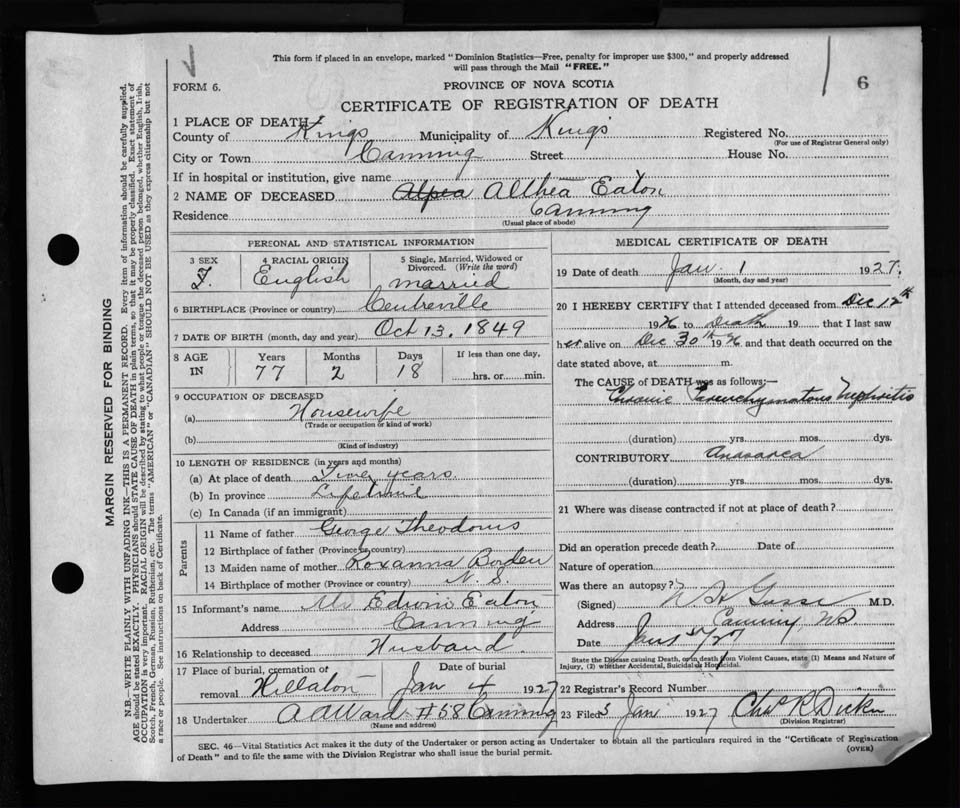 This form if placed in an envelope, marked "Dominion Statistics—Free, penalty for improper use $300," and properly addressed
will pass through the Mail "FREE."
6
FORM 6.
PROVINCE OF NOVA SCOTIA
CERTIFICATE OF REGISTRATION OF DEATH
1 PLACE OF DEATH
County of Kings Municipality of Kings Registered No.
(For use of Registrar General only)
City or Town Canning Street House No.
If in hospital or institution, give name
2 NAME OF DECEASED Althea Eaton
Residence Canning
(Usual place of abode)
PERSONAL AND STATISTICAL INFORMATION
3 SEX 4 RACIAL ORIGIN 5 Single, Married, Widowed or Divorced. (Write the word)
F. English married
6 BIRTHPLACE (Province or country) Centreville
7 DATE OF BIRTH (month, day and year) Oct 13, 1849
8 AGE IN Years Months Days If less than one day,
77 2 18 hrs. or min.
9 OCCUPATION OF DECEASED
(a) Housewife
(Trade or occupation or kind of work)
(b)
(Kind of industry)
10 LENGTH OF RESIDENCE (in years and months)
(a) At place of death years
(b) In province Lifetime
(c) In Canada (if an immigrant)
Parents
11 Name of father George
12 Birthplace of father (Province or country)
13 Maiden name of mother Roxanna Borden
14 Birthplace of mother (Province or country) N. S.
15 Informant's name Mr Edwin Eaton
Address Canning
16 Relationship to deceased Husband.
17 Place of burial, cremation or removal Hillaton Date of burial Jan 4 1927
18 Undertaker A A Ward #58 Canning
(Name and address)
MEDICAL CERTIFICATE OF DEATH
19 Date of death Jan 1 1927.
(Month, day and year)
20 I HEREBY CERTIFY that I attended deceased from Dec 12th
1926 to Death 19 that I last saw
her alive on Dec 30th 1926 and that death occurred on the
date stated above, at m.
The CAUSE of DEATH was as follows:—
Chronic Parenchymatous Nephritis
(duration) yrs. mos. dys.
CONTRIBUTORY Anasarca
(duration) yrs. mos. dys.
21 Where was disease contracted if not at place of death?
Did an operation precede death? Date of
Nature of operation
Was there an autopsy?
(Signed) M.D.
Address Canning, NS.
Date
State the Disease causing Death, or in death from Violent Causes, state (1) Means and Nature of
Injury, (2) whether Accidental, Suicidal or Homicidal.
22 Registrar's Record Number
23 Filed 3 Jan 1927
(Division Registrar)
SEC. 46—Vital Statistics Act makes it the duty of the Undertaker or person acting as Undertaker to obtain all the particulars required in the "Certificate of Registration
of Death" and to file the same with the Division Registrar who shall issue the burial permit. (OVER)
MARGIN RESERVED FOR BINDING
N.B.—WRITE PLAINLY WITH UNFADING INK—THIS IS A PERMANENT RECORD. Every item of information should be carefully supplied.
AGE should be stated EXACTLY. PHYSICIANS should STATE CAUSE OF DEATH in plain terms, so that it may be properly classified. Exact statement of
OCCUPATION is very important. RACIAL ORIGIN will be described by stating to what people or tongue the deceased person belonged, whether English, Irish,
Scotch, French, German, Russian, Ruthenian, etc. The terms "AMERICAN" or "CANADIAN" SHOULD NOT BE USED as they express citizenship but not
a race or people. See instructions on back of Certificate.